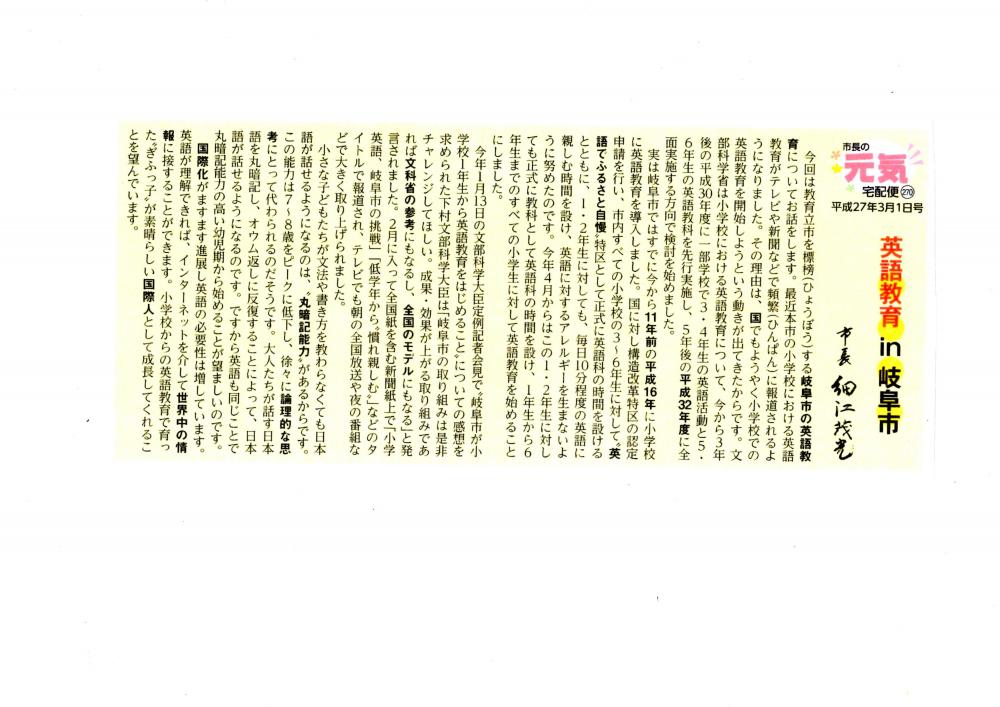 市長の
元気
宅配便270
平成27年3月1日号
英語教育 in 岐阜市
市長 細江茂光
今回は教育立市を標榜(ひょうぼう)する岐阜市の英語教
育についてお話をします。最近本市の小学校における英語
教育がテレビや新聞などで頻繁(ひんぱん)に報道されるよ
うになりました。その理由は、国でもようやく小学校での
英語教育を開始しようという動きが出てきたからです。文
部科学省は小学校における英語教育について、今から3年
後の平成30年度に一部学校で3・4年生の英語活動と5・
6年生の英語教科を先行実施し、5年後の平成32年度に全
面実施する方向で検討を始めました。
実は岐阜市ではすでに今から11年前の平成16年に小学校
に英語教育を導入しました。国に対し構造改革特区の認定
申請を行い、市内すべての小学校の3～6年生に対して〝英
語でふるさと自慢〟特区として正式に英語科の時間を設ける
とともに、1・2年生に対しても、毎日10分程度の英語に
親しむ時間を設け、英語に対するアレルギーを生まないよ
うに努めたのです。今年4月からはこの1・2年生に対し
ても正式に教科として英語科の時間を設け、1年生から6
年生までのすべての小学生に対して英語教育を始めること
にしました。
今年1月13日の文部科学大臣定例記者会見で〝岐阜市が小
学校1年生から英語教育をはじめること〟についての感想を
求められた下村文部科学大臣は「岐阜市の取り組みは是非
チャレンジしてほしい。成果・効果が上がる取り組みであ
れば文科省の参考にもなるし、全国のモデルにもなる」と発
言されました。2月に入って全国紙を含む新聞紙上で「小学
英語、岐阜市の挑戦」「低学年から〝慣れ親しむ〟」などのタ
イトルで報道され、テレビでも朝の全国放送や夜の番組な
どで大きく取り上げられました。
小さな子どもたちが文法や書き方を教わらなくても日本
語が話せるようになるのは、〝丸暗記能力〟があるからです。
この能力は7～8歳をピークに低下し、徐々に論理的な思
考にとって代わられるのだそうです。大人たちが話す日本
語を丸暗記し、オウム返しに反復することによって、日本
語が話せるようになるのです。ですから英語も同じことで
丸暗記能力の高い幼児期から始めることが望ましいのです。
国際化がますます進展し英語の必要性は増しています。
英語が理解できれば、インターネットを介して世界中の情
報に接することができます。小学校からの英語教育で育っ
た〝ぎふっ子〟が素晴らしい国際人として成長してくれるこ
とを望んでいます。